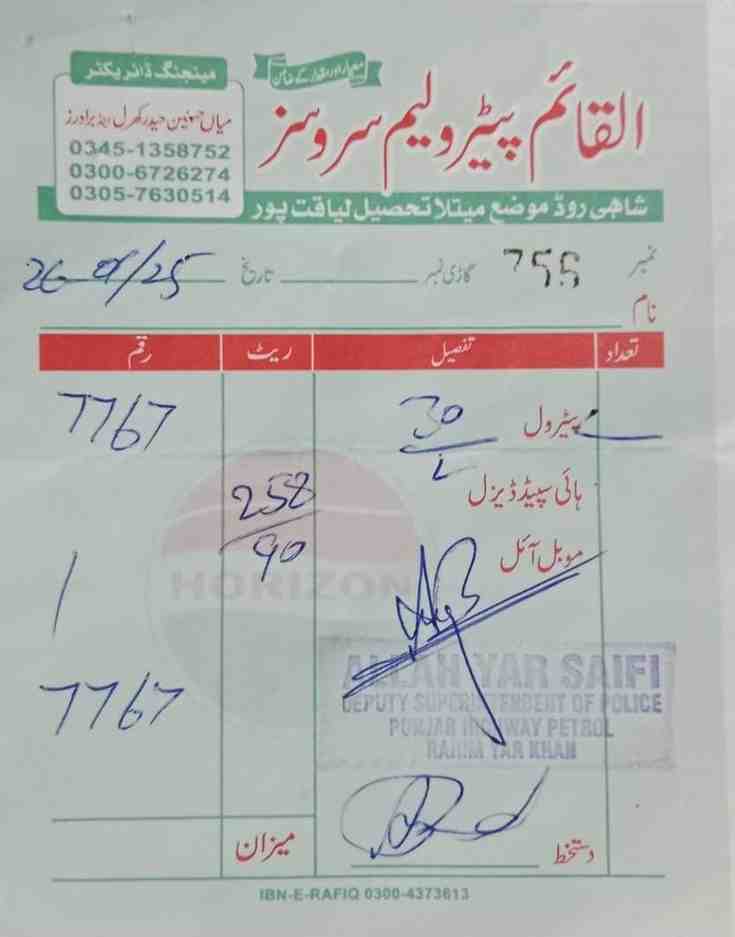 معیار اور مقدار کے ضامن
القائم پیٹرولیم سروسز
مینجنگ ڈائریکٹر
میاں حسنین حیدر کھرل اینڈ برادرز
0345-1358752
0300-6726274
0305-7630514
شاھی روڈ موضع میتلا تحصیل لیاقت پور
نمبر 756 گاڑی نمبر تاریخ 26 /25
نام
تعداد تفصیل ریٹ رقم
پیٹرول 30 7767
L
ہائی سپیڈ ڈیزل 258
90
موبل آئل
HORIZON
ALLAH YAR SAIFI
7767
DEPUTY SUPERINTENDENT OF POLICE
PUNJAB HIGHWAY PETROL
RAHIM YAR KHAN
دستخط میزان
IBN-E-RAFIQ 0300-4373613